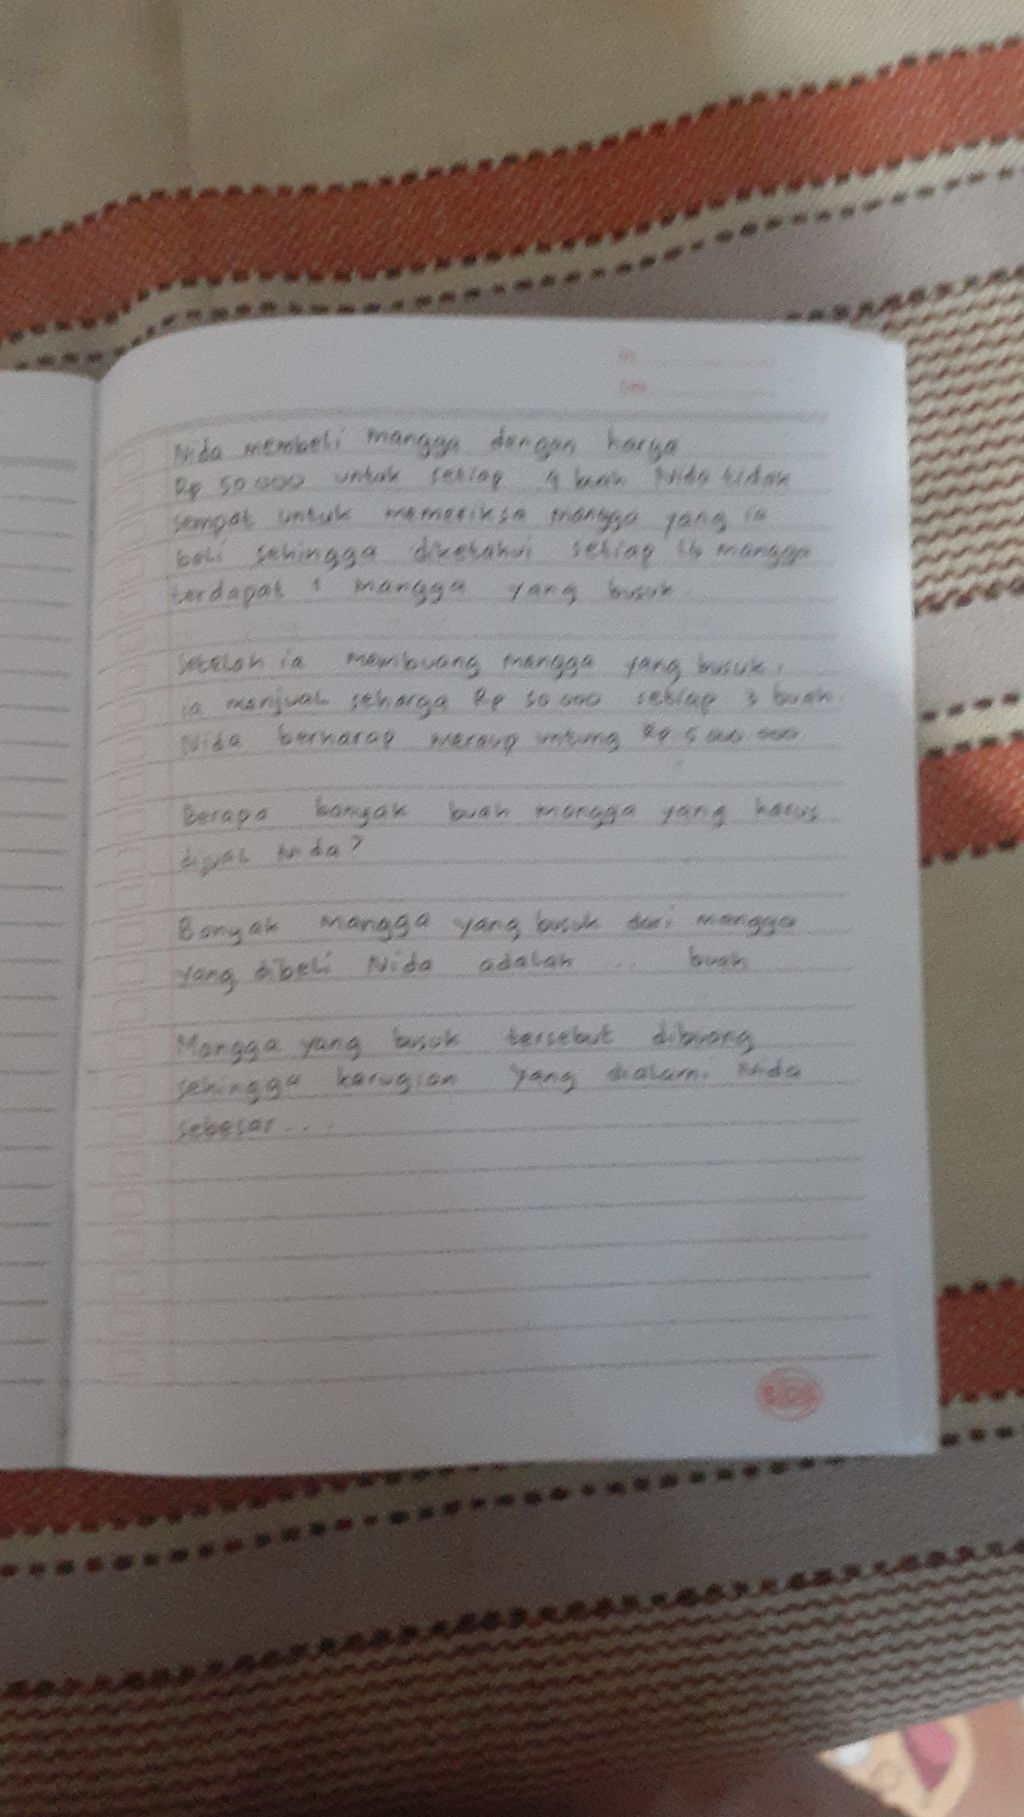 No
Date
Nida membeli mangga dengan harga
Rp 50 000 untuk setiap 4 buah Nida tidak
sempat untuk memeriksa mangga yang ia
beli sehingga diketahui setiap 16 mangga
terdapat 1 mangga yang busuk.
Setelah ia membuang mangga yang busuk,
ia menjual seharga Rp 50 000 setiap 3 buah.
Nida berharap meraup untung Rp 5 000.000.
Berapa banyak buah mangga yang harus
dijual Nida?
Banyak mangga yang busuk dari mangga
yang dibeli Nida adalah ... buah
Mangga yang busuk tersebut dibuang
sehingga kerugian yang dialami Nida
sebesar...